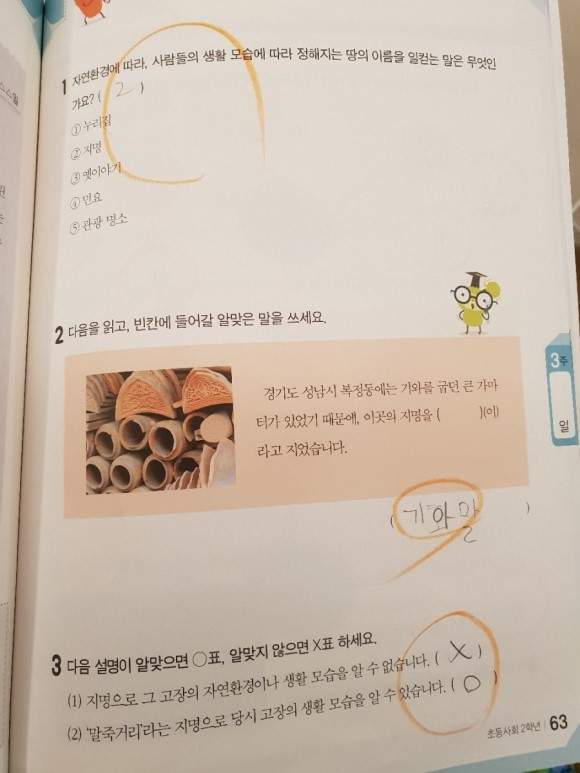 1 자연환경에 따라, 사람들의 생활 모습에 따라 정해지는 땅의 이름을 일컫는 말은 무엇인
가요? ( 2 )
① 누리집
② 지명
③ 옛이야기
④ 민요
⑤ 관광 명소
2 다음을 읽고, 빈칸에 들어갈 알맞은 말을 쓰세요.
경기도 성남시 복정동에는 기와를 굽던 큰 가마
터가 있었기 때문에, 이곳의 지명을 ( )(이)
라고 지었습니다.
( 기와말 )
3주
일
3 다음 설명이 알맞으면 ○표, 알맞지 않으면 X표 하세요.
(1) 지명으로 그 고장의 자연환경이나 생활 모습을 알 수 없습니다. ( X )
(2) '말죽거리'라는 지명으로 당시 고장의 생활 모습을 알 수 있습니다. ( O )
초등사회 2학년 63